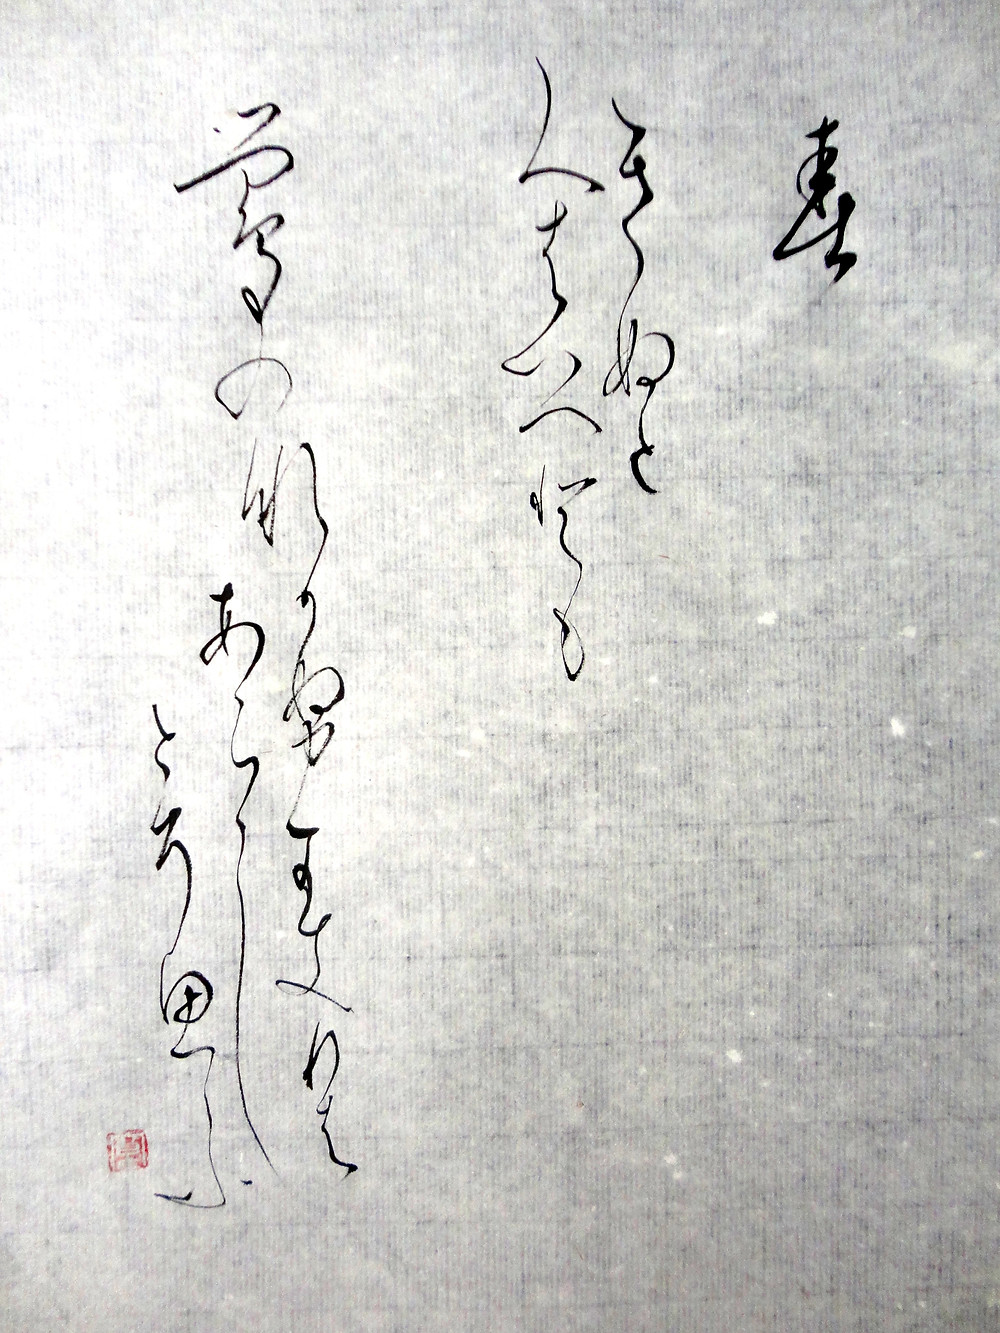 春
きぬと
人はいへども
鶯のなかぬかきりは
あらし
とそ思ふ